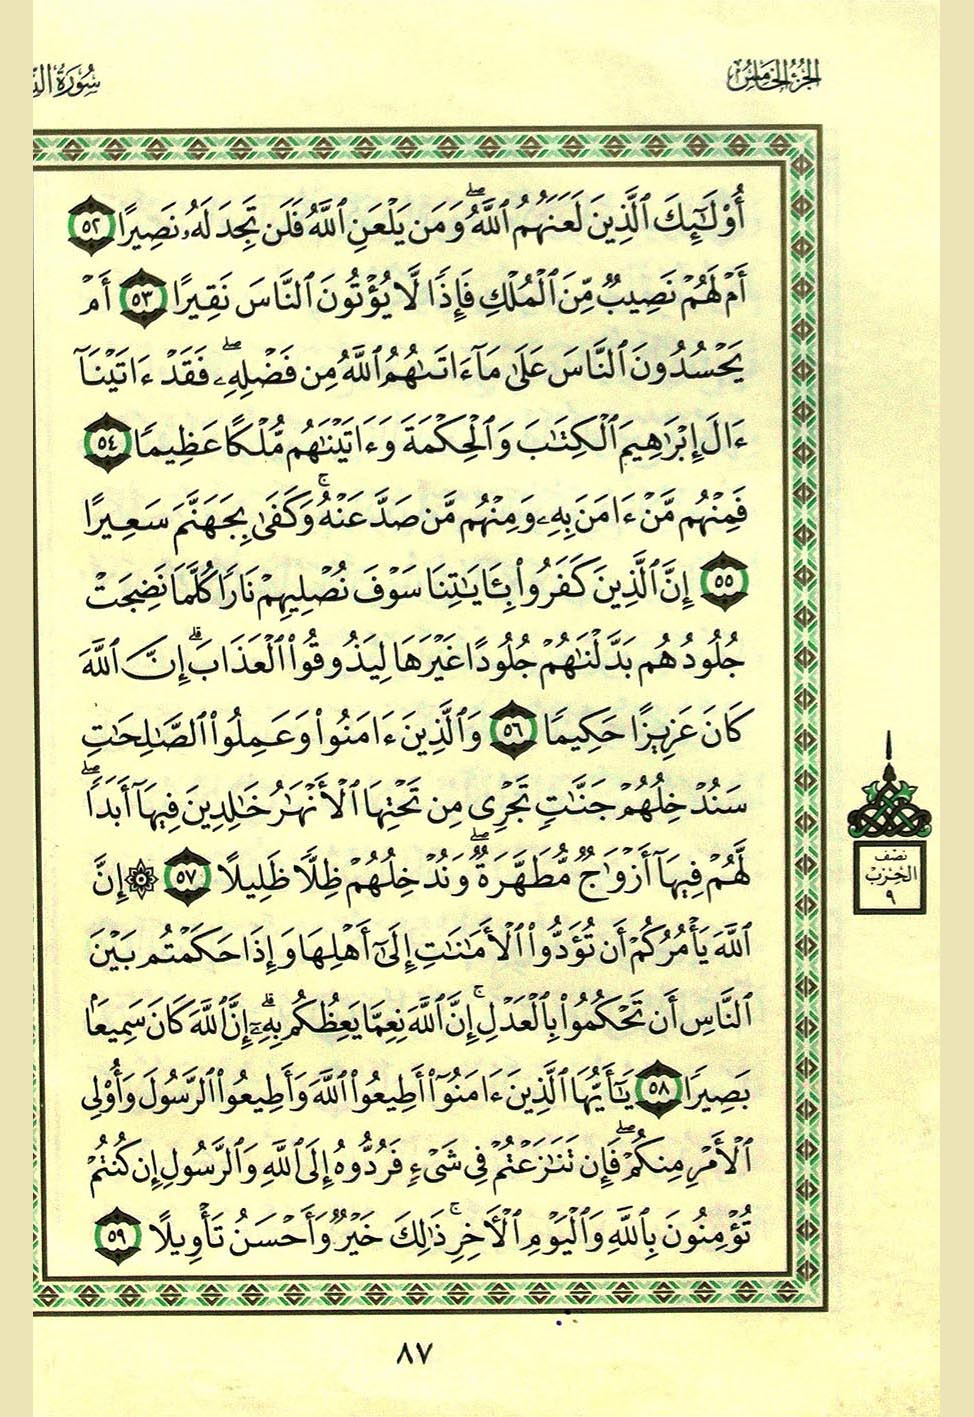 الجزء الخامس
سورة
أُوْلَٰٓئِكَ ٱلَّذِينَ لَعَنَهُمُ ٱللَّهُۖ وَمَن يَلْعَنِ ٱللَّهُ فَلَن تَجِدَ لَهُۥ نَصِيرًا ٥٢
أَمْ لَهُمْ نَصِيبٌ مِّنَ ٱلْمُلْكِ فَإِذًا لَّا يُؤْتُونَ ٱلنَّاسَ نَقِيرًا ٥٣ أَمْ
يَحْسُدُونَ ٱلنَّاسَ عَلَىٰ مَآ ءَاتَىٰهُمُ ٱللَّهُ مِن فَضْلِهِۦۖ فَقَدْ ءَاتَيْنَآ
ءَالَ إِبْرَٰهِيمَ ٱلْكِتَٰبَ وَٱلْحِكْمَةَ وَءَاتَيْنَٰهُم مُّلْكًا عَظِيمًا ٥٤
فَمِنْهُم مَّنْ ءَامَنَ بِهِۦ وَمِنْهُم مَّن صَدَّ عَنْهُۚ وَكَفَىٰ بِجَهَنَّمَ سَعِيرًا
٥٥ إِنَّ ٱلَّذِينَ كَفَرُواْ بِـَٔايَٰتِنَا سَوْفَ نُصْلِيهِمْ نَارًا كُلَّمَا نَضِجَتْ
جُلُودُهُم بَدَّلْنَٰهُمْ جُلُودًا غَيْرَهَا لِيَذُوقُواْ ٱلْعَذَابَۗ إِنَّ ٱللَّهَ
كَانَ عَزِيزًا حَكِيمًا ٥٦ وَٱلَّذِينَ ءَامَنُواْ وَعَمِلُواْ ٱلصَّٰلِحَٰتِ
سَنُدْخِلُهُمْ جَنَّٰتٍ تَجْرِى مِن تَحْتِهَا ٱلْأَنْهَٰرُ خَٰلِدِينَ فِيهَآ أَبَدًاۖ
لَّهُمْ فِيهَآ أَزْوَٰجٌ مُّطَهَّرَةٌۖ وَنُدْخِلُهُمْ ظِلًّا ظَلِيلًا ٥٧ ۞ إِنَّ
ٱللَّهَ يَأْمُرُكُمْ أَن تُؤَدُّواْ ٱلْأَمَٰنَٰتِ إِلَىٰٓ أَهْلِهَا وَإِذَا حَكَمْتُم بَيْنَ
ٱلنَّاسِ أَن تَحْكُمُواْ بِٱلْعَدْلِۚ إِنَّ ٱللَّهَ نِعِمَّا يَعِظُكُم بِهِۦٓۗ إِنَّ ٱللَّهَ كَانَ سَمِيعًۢا
بَصِيرًا ٥٨ يَٰٓأَيُّهَا ٱلَّذِينَ ءَامَنُوٓاْ أَطِيعُواْ ٱللَّهَ وَأَطِيعُواْ ٱلرَّسُولَ وَأُوْلِى
ٱلْأَمْرِ مِنكُمْۖ فَإِن تَنَٰزَعْتُمْ فِى شَىْءٍ فَرُدُّوهُ إِلَى ٱللَّهِ وَٱلرَّسُولِ إِن كُنتُمْ
تُؤْمِنُونَ بِٱللَّهِ وَٱلْيَوْمِ ٱلْأَخِرِۚ ذَٰلِكَ خَيْرٌ وَأَحْسَنُ تَأْوِيلًا ٥٩
نصف
الحزب
٩
٨٧